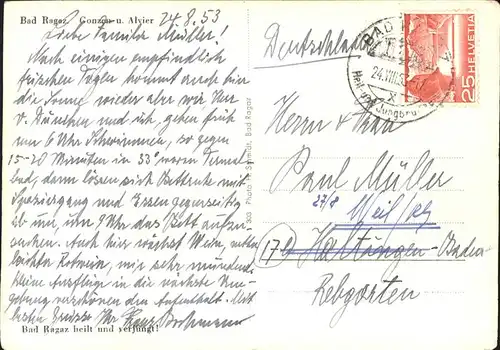 Bad Ragaz Gonzen u. Alvier
24.8.53
Liebe Familie Müller!
Nach einigen empfindlich
frischen Tagen kommt auch hier
die Sonne wieder aber wir Herr
v. und ich, gehen früh
um 6 Uhr Schwimmen, so gegen
15-20 Minuten in 33° warm
bad, dann lösen sich Bettruhe mit
Spaziergang und Essen gegenseitig
ab um, um 9 Uhr das Bett aufzu-
suchen. Auch hier wächst Wein, mir
kleine Ausflüge in die nächste Um-
gebung verschönen den Aufenthalt. Mit
besten Grüssen Ihr
Bad Ragaz heilt und verjüngt!
300 Photo H. Schmidt, Bad Ragaz
Deutschland
BAD RAGAZ
24.VIII.53
HELVETIA
25
Herrn &
Paul Müller
27/8
Weil/Rh
(17b) Haltingen-Baden
Rebgarten